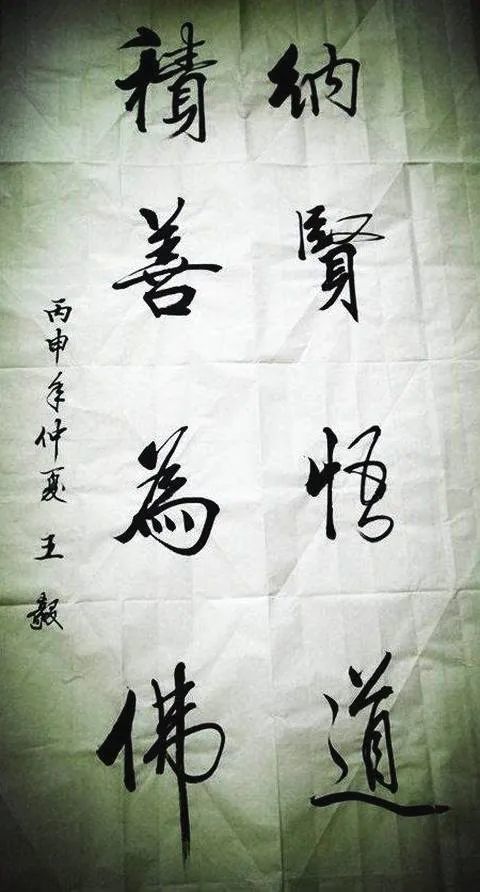 納賢悟道
積善為佛
丙申年仲夏 王毅